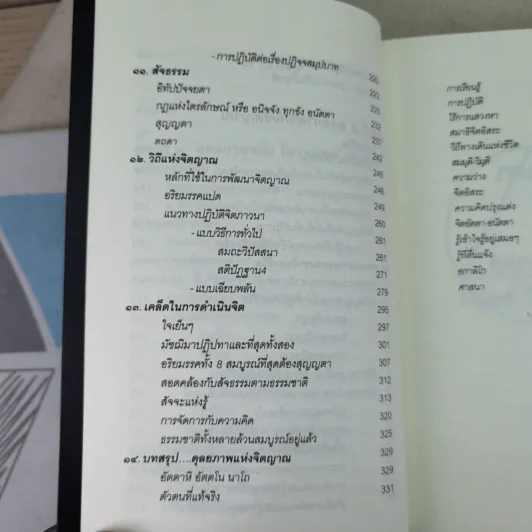 - การปฏิบัติต่อเรื่องปฏิจจสมุปบาท 220
๑๑. สัจธรรม 223
อิทัปปัจจยตา 225
กฎแห่งไตรลักษณ์ หรือ อนิจจัง ทุกขัง อนัตตา 228
สุญญตา 232
ตถตา 237
๑๒. วิถีแห่งจิตญาณ 242
หลักที่ใช้ในการพัฒนาจิตญาณ 245
อริยมรรคแปด 246
แนวทางปฏิบัติจิตภาวนา 249
- แบบวิธีการทั่วไป 260
สมถะวิปัสสนา 261
สติปัฏฐาน4 261
- แบบเฉียบพลัน 271
๑๓. เคล็ดในการดำเนินจิต 279
ใจเย็นๆ 295
มัชฌิมาปฏิปทาและที่สุดทั้งสอง 297
อริยมรรคทั้ง 8 สมบูรณ์ที่สุดต้องสุญญตา 301
สอดคล้องกับสัจธรรมตามธรรมชาติ 307
สัจจะแห่งรู้ 312
การจัดการกับความคิด 313
ธรรมชาติทั้งหลายล้วนสมบูรณ์อยู่แล้ว 320
๑๔. บทสรุป....ดุลยภาพแห่งจิตญาณ 325
อัตตาหิ อัตตโน นาโถ 329
ตัวตนที่แท้จริง 329
331
การเรียนรู้
การปฏิบัติ
ไร้การแสวงหา
สมาธิจิตอิสระ
วิถีทางเดินแห่งชีวิต
สมมุติวิมุติ
ความว่าง
จิตอิสระ
ความคิดปรุงแต่ง
จิตอัตตา-อนัตตา
รู้เข้าใจรู้อยู่เสมอๆ
รู้ที่ตื่นแจ้ง
อกาลิโก
ศาสนา